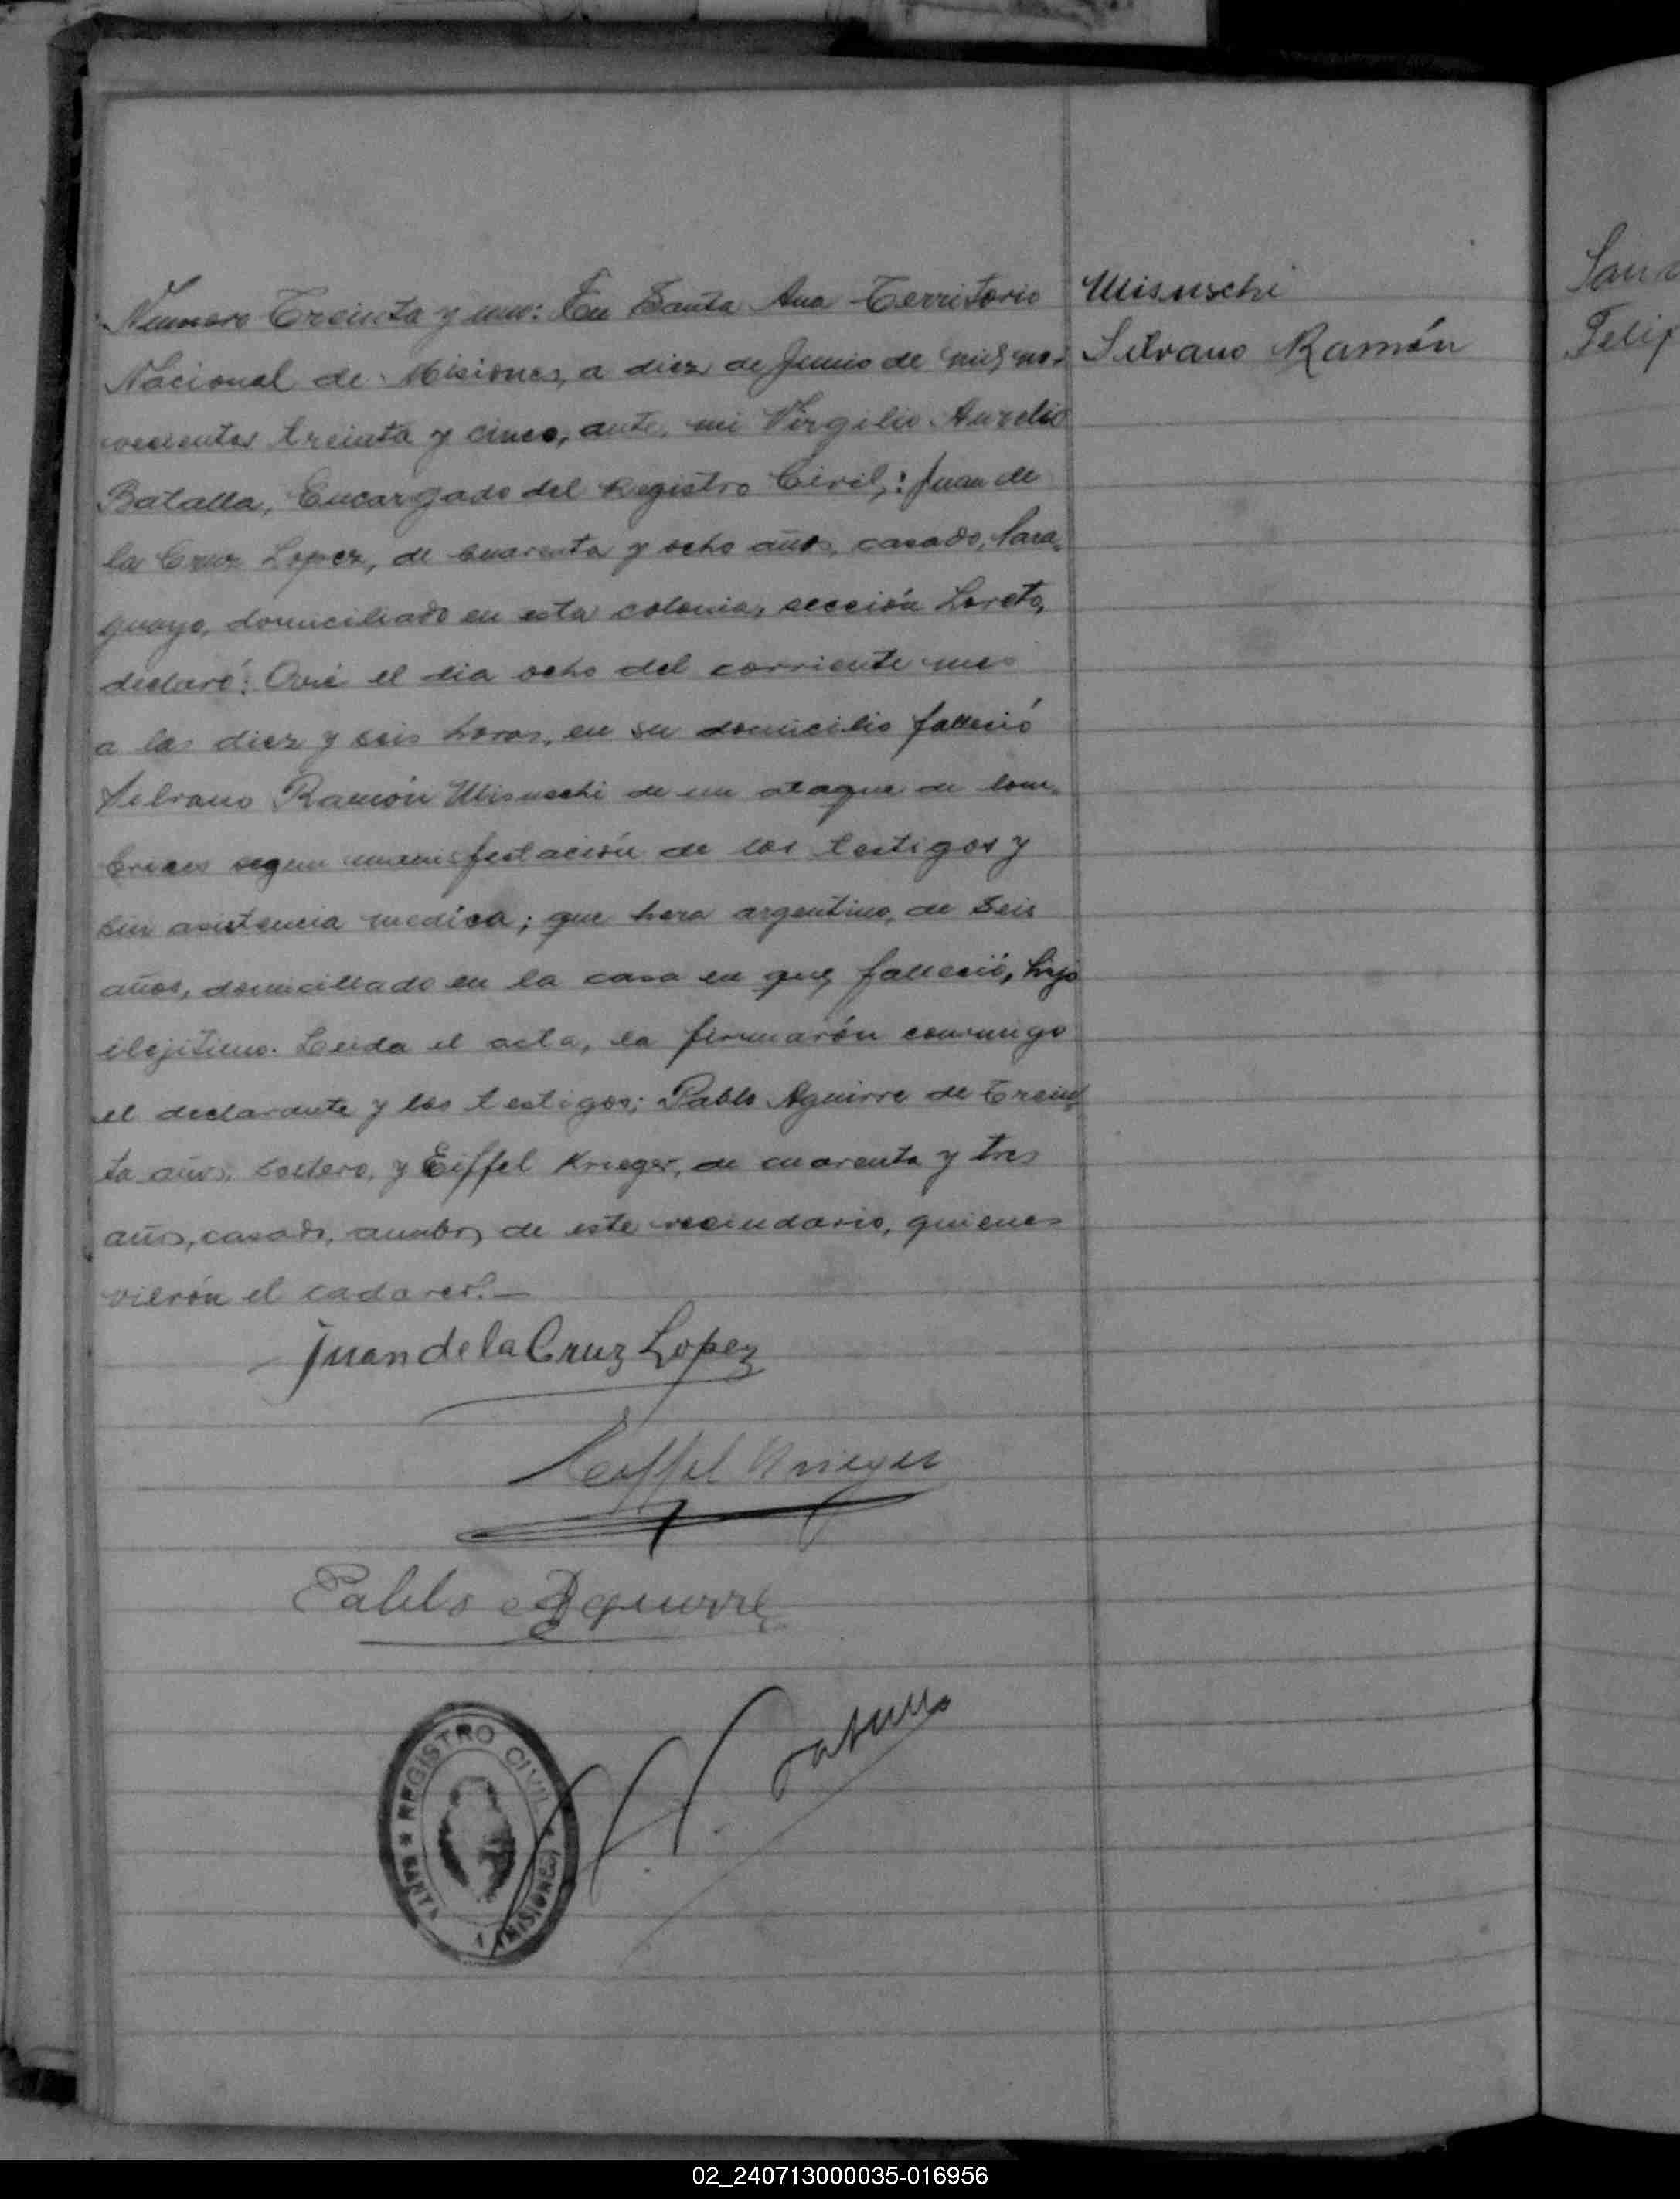 Numero Treinta y uno: En Santa Ana Territorio
Nacional de Misiones, a diez de Junio de mil no-
vecientos treinta y cinco, ante mi Virgilio Aurelio
Batalla, Encargado del Registro Civil,: Juan de
la Cruz Lopez, de cuarenta y ocho años, casado, Para-
guayo, domiciliado en esta colonia, sección Loreto,
declaró: Qué el dia ocho del corriente mes
a las diez y seis horas, en su domicilio falleció
Silvano Ramón Misuschi de un ataque de lom-
brices segun manisfestación de los testigos y
sin asistencia medica; que hera argentino, de seis
años, domiciliado en la casa en que falleció, hijo
ilejitimo. Leida el acta, la firmarón conmigo
el declarante y los testigos; Pablo Aguirre de Trein-
ta años, soltero, y Eiffel Krieger, de cuarenta y tres
años, casado, ambos de este vecindario, quienes
vierón el cadaver.—
Misuschi
Silvano Ramón
Juan de la Cruz Lopez
Eiffel Krieger
Pablo Aguirre
REGISTRO CIVIL
SANTA
(MISIONES)
Felip
02_240713000035-016956